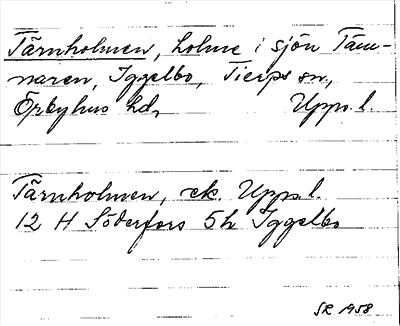 Tärnholmen, holme i sjön Täm-
naren, Iggelbo, Tierps sn,
Örbyhus hd, Upps. l.
Tärnholmen, ek. Upps. l.
12 H Söderfors 5h Iggelbo
SR 1958